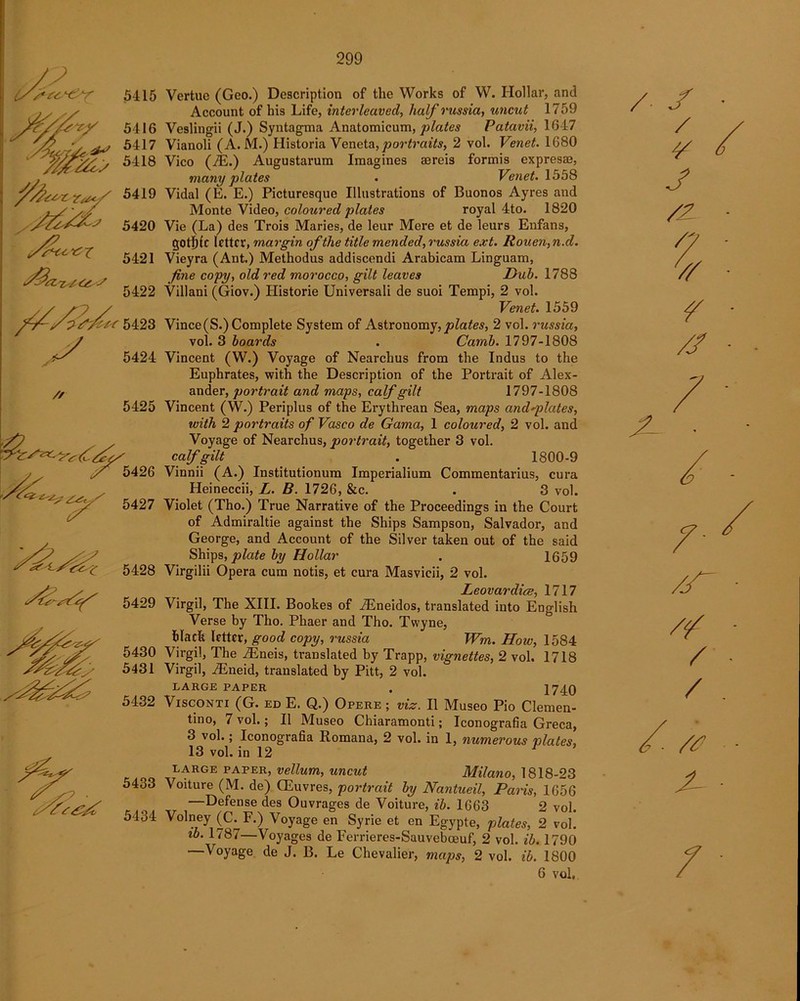 299
5415 Vertue (Geo.) Description of the Works of W. Hollar, and
Account of his Life, interleaved, half russia, uncut 1759
5416 Veslingii (J.) Syntagma Anatomicum, plates Patavii, 1647
5417 Vianoli (A. M.) Historia Veneta, portraits, 2 vol. Venet. 1680
5418 Vico (Æ.) Augustarum Imagines æreis formis expresæ,
many plates . Venet. 1558
5419 Vidal (E. E.) Picturesque Illustrations of Buonos Ayres and
Monte Video, coloured plates royal 4to. 1820
5420 Vie (La) des Trois Maries, de leur Mere et de leurs Enfans,
gothic letter, margin of the title mended, russia ext. Rouen, n.d.
5421 Vieyra (Ant.) Methodus addiscendi Arabicam Linguam,
fine copy, old red morocco, gilt leaves Dub. 1788
5422 Villani (Giov.) Historie Universali de suoi Tempi, 2 vol.
Venet. 1559
5423 Vince (S.) Complete System of Astronomy, plates, 2 vol. russia,
vol. 3 boards . Camb. 1797-1808
5424 Vincent (W.) Voyage of Nearchus from the Indus to the
Euphrates, with the Description of the Portrait of Alex-
ander, portrait and maps, calf gilt 1797-1808
5425 Vincent (W.) Periplus of the Erythrean Sea, maps and plates,
with 2 portraits of Vasco de Gama, 1 coloured, 2 vol. and
Voyage of Nearchus, portrait, together 3 vol.
calf gilt . 1800-9
5426 Vinnii (A.) Institutionum Imperialium Commentarius, cura
Heineccii, L. B. 1726, &c. . 3 vol.
5427 Violet (Tho.) True Narrative of the Proceedings in the Court
of Admiraltie against the Ships Sampson, Salvador, and
George, and Account of the Silver taken out of the said
Ships, plate by Hollar . 1659
5428 Virgilii Opera cum notis, et cura Masvicii, 2 vol.
Leovardiæ, 1717
5429 Virgil, The XIII. Bookes of Æneidos, translated into English
Verse by Tho. Phaer and Tho. Twyne,
black letter, good copy, russia Wm. How, 1584
5430 Virgil, The Æneis, translated by Trapp, vignettes, 2 vol. 1718
5431 Virgil, Æneid, translated by Pitt, 2 vol.
LARGE PAPER . 1740
5432 VISCONTI (G. ED E. Q.) OPERE; viz. Il Museo Pio Clemen-
tino, 7 vol.; Il Museo Chiaramonti; Iconografia Greca,
3 vol.; Iconografia Romana, 2 vol. in 1, numerous plates,
13 vol. in 12
LARGE PAPER, vellum, uncut Milano, 1818-23
5433 Voiture (M. de) Œuvres, portrait by Nantueil, Paris, 1656
—Defense des Ouvrages de Voiture, ib. 1663 2 vol.
5434 Volney (C. F.) Voyage en Syrie et en Egypte, plates, 2 vol.
ib. 1787—Voyages de Ferrieres-Sauvebœuf, 2 vol. ib. 1790
—Voyage de J. B. Le Chevalier, maps, 2 vol. ib. 1800
6 vol.